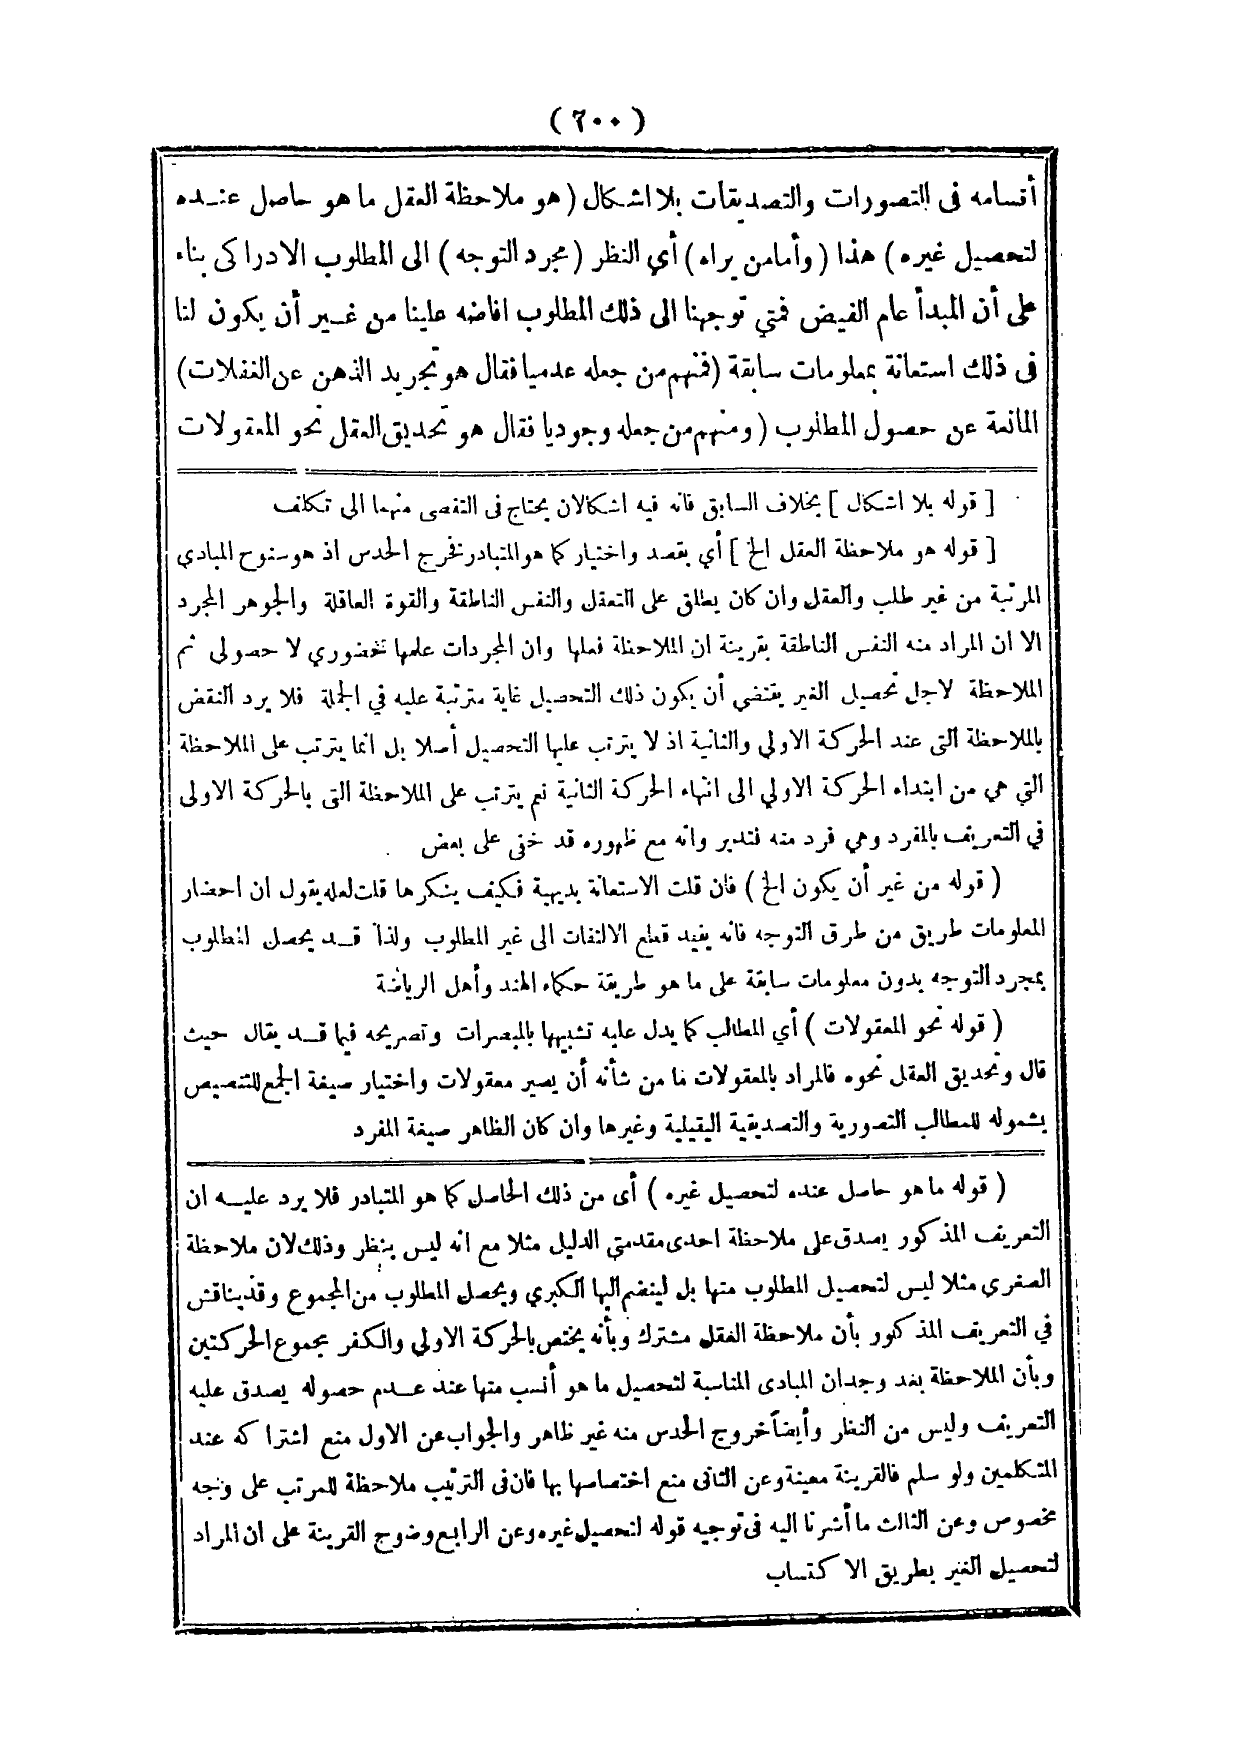 ( ٢٠٠ )
أقسامه فى التصورات والتصديقات بلا اشكال ( هو ملاحظة العقل ما هو حاصل عنـده
لتحصيل غيره ) هذا ( وأما من يراه ) أي النظر ( مجرد التوجه ) الى المطلوب الادراكى بناء
على أن المبدأ عام الفيض فمتي توجهنا الى ذلك المطلوب افاضه علينا من غـير أن يكون لنا
فى ذلك استعانة بمعلومات سابقة ( فمنهم من جعله عدميا فقال هو تجريد الذهن عن الغفلات )
المانعة عن حصول المطلوب ( ومنهم من جعله وجوديا فقال هو تحديق العقل نحو المعقولات
[ قوله بلا اشكال ] بخلاف السابق فانه فيه اشكالان يحتاج فى التفصى منهما الى تكلف
[ قوله هو ملاحظة العقل الخ ] أي بقصد واختيار كما هو المتبادر فخرج الحدس اذ هو سنوح المبادي
المرتبة من غير طلب والعقل وان كان يطلق على التعقل والنفس الناطقة والقوة العاقلة والجوهر المجرد
الا ان المراد منه النفس الناطقة بقرينة ان الملاحظة فعلها وان المجردات علمها حضوري لا حصولى ثم
الملاحظة لاجل تحصيل الغير يقتضي أن يكون ذلك التحصيل غاية مترتبة عليه في الجملة فلا يرد النقض
بالملاحظة التى عند الحركة الاولي والثانية اذ لا يترتب عليها التحصيل أصلا بل انما يترتب على الملاحظة
التي هي من ابتداء الحركة الاولي الى انتهاء الحركة الثانية نعم يترتب على الملاحظة التى بالحركة الاولى
في التعريف بالمفرد وهي فرد منه فتدبر وانه مع ظهوره قد خفي على بعض
( قوله من غير أن يكون الخ ) فان قلت الاستعانة بديهية فكيف ينكرها قلت لعله يقول ان احضار
المعلومات طريق من طرق التوجه فانه يفيد قطع الالتفات الى غير المطلوب ولذا قـد يحصل المطلوب
بمجرد التوجه بدون معلومات سابقة على ما هو طريقة حكماء الهند وأهل الرياضة
( قوله نحو المعقولات ) أي المطالب كما يدل عليه تشبيهها بالمبصرات وتصريحه فيما قـد يقال حيث
قال وتحديق العقل نحوه فالمراد بالمعقولات ما من شأنه أن يصير معقولات واختيار صيغة الجمع للتنصيص
بشموله للمطالب التصورية والتصديقية اليقينية وغيرها وان كان الظاهر صيغة المفرد
( قوله ما هو حاصل عنده لتحصيل غيره ) أى من ذلك الحاصل كما هو المتبادر فلا يرد عليـه ان
التعريف المذكور يصدق على ملاحظة احدى مقدمتي الدليل مثلا مع انه ليس بنظر وذلك لان ملاحظة
الصغري مثلا ليس لتحصيل المطلوب منها بل لينضم اليها الكبري ويحصل المطلوب من المجموع وقد يناقش
في التعريف المذكور بأن ملاحظة العقل مشترك وبأنه يختص بالحركة الاولي والكفر بمجموع الحركتين
وبأن الملاحظة بعد وجدان المبادى المناسبة لتحصيل ما هو أنسب منها عند عـدم حصوله يصدق عليه
التعريف وليس من النظر وأيضاً خروج الحدس منه غير ظاهر والجواب عن الاول منع اشتراكه عند
المتكلمين ولو سلم فالقرينة معينة وعن الثانى منع اختصاصها بها فان فى الترتيب ملاحظة للمرتب على وجه
مخصوص وعن الثالث ما أشرنا اليه فى توجيه قوله لتحصيل غيره وعن الرابع وضوح القرينة على ان المراد
لتحصيل الغير بطريق الاكتساب